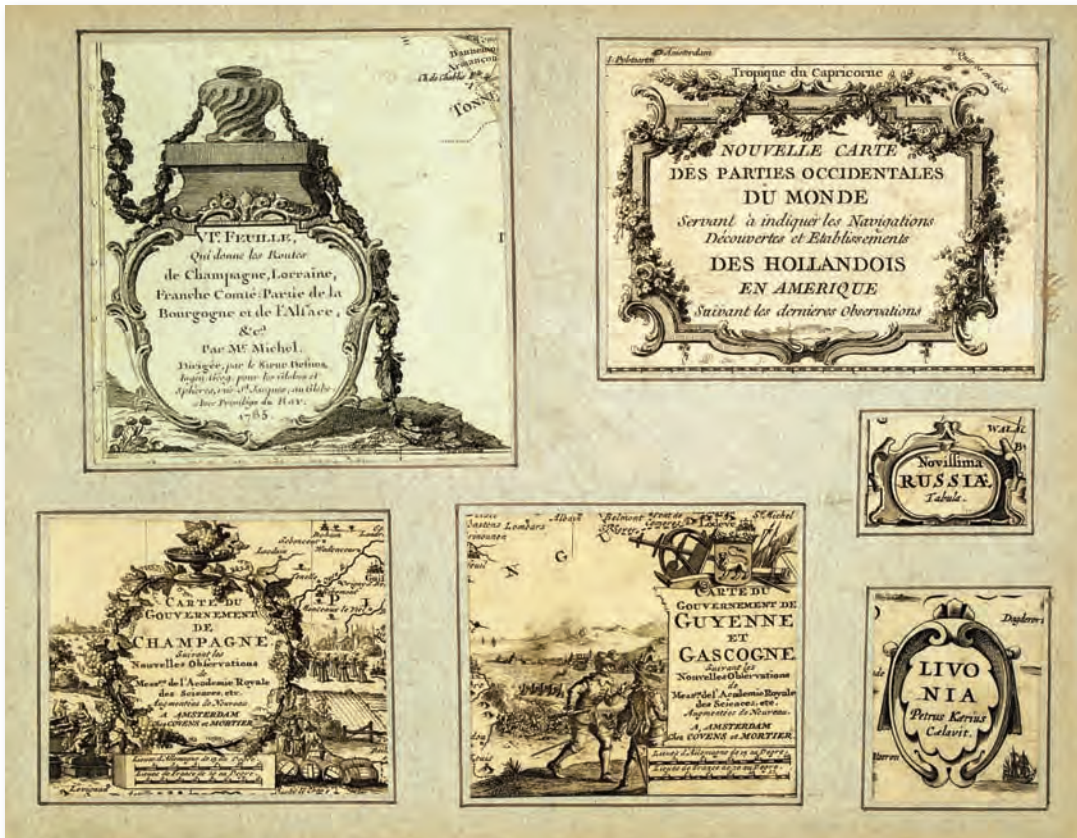 Armançon
TONNE
VI.e FEUILLE,
Qui donne les Routes
de Champagne, Lorraine,
Franche Comté: Partie de la
Bourgogne et de l'Alsace,
&c.a
Par Mr. Michel.
Dirigée, par le Sieur Desnos,
Ingén. Géog. pour les Globes et
Sphères, rue St. Jacques, au Globe
Avec Privilége du Roy.
1765.
Amsterdam
Tropique du Capricorne
NOUVELLE CARTE
DES PARTIES OCCIDENTALES
DU MONDE
Servant à indiquer les Navigations
Découvertes et Etablissements
DES HOLLANDOIS
EN AMERIQUE
Suivant les dernieres Observations
Novissima
RUSSIÆ
Tabula.
CARTE DU
GOUVERNEMENT
DE
CHAMPAGNE
Suivant les
Nouvelles Observations
de
Mess.rs de l'Academie Royale
des Sciences, etc.
Augmentées de Nouveau.
A AMSTERDAM
Chez COVENS et MORTIER
Lieues d'Allemagne de 15 au Degre.
Lieues de France de 20 au Degre.
Albain
Belmont
St. Michel
Lombars
Lodeve
CARTE DU
GOUVERNEMENT DE
GUYENNE
ET
GASCOGNE
Suivant les
Nouvelles Observations
de
Mess.rs de l'Academie Royale
des Sciences, etc.
Augmentées de Nouveau.
A AMSTERDAM
Chez COVENS et MORTIER
Lieues d'Allemagne de 15 au Degre.
Lieues de France de 20 au Degre.
LIVO
NIA
Petrus Kærius
Cælavit.